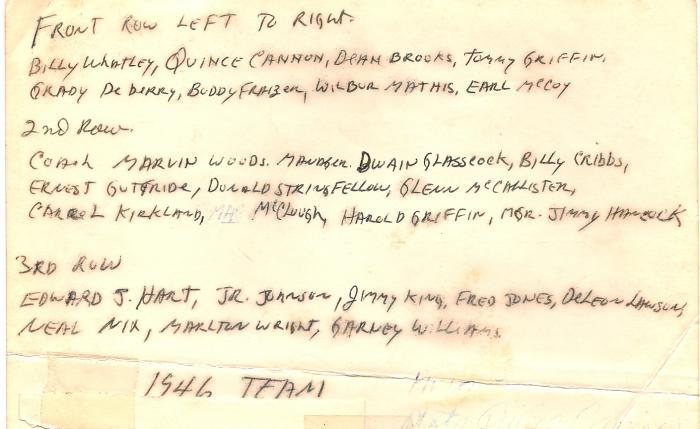 FRONT ROW LEFT TO RIGHT.
BILLY WHATLEY, QUINCE CANNON, DEAN BROOKS, TOMMY GRIFFIN,
GRADY DeBERRY, BUDDY FRAIZER, WILBUR MATHIS, EARL McCOY
2nd ROW.
COACH MARVIN WOODS. MANAGER DWAIN GLASSCOCK, BILLY CRIBBS,
ERNEST GUTTRIDE, DONALD STRINGFELLOW, GLENN McCALLISTER,
CARROL KIRKLAND, McCLOUGH, HAROLD GRIFFIN, MGR. JIMMY HANCOCK
3RD ROW
EDWARD J. HART, JR. JOHNSON, JIMMY KING, FRED JONES, DeLEON LAWSON,
NEAL NIX, MARLTON WRIGHT, GARNEY WILLIAMS.
1946 TEAM